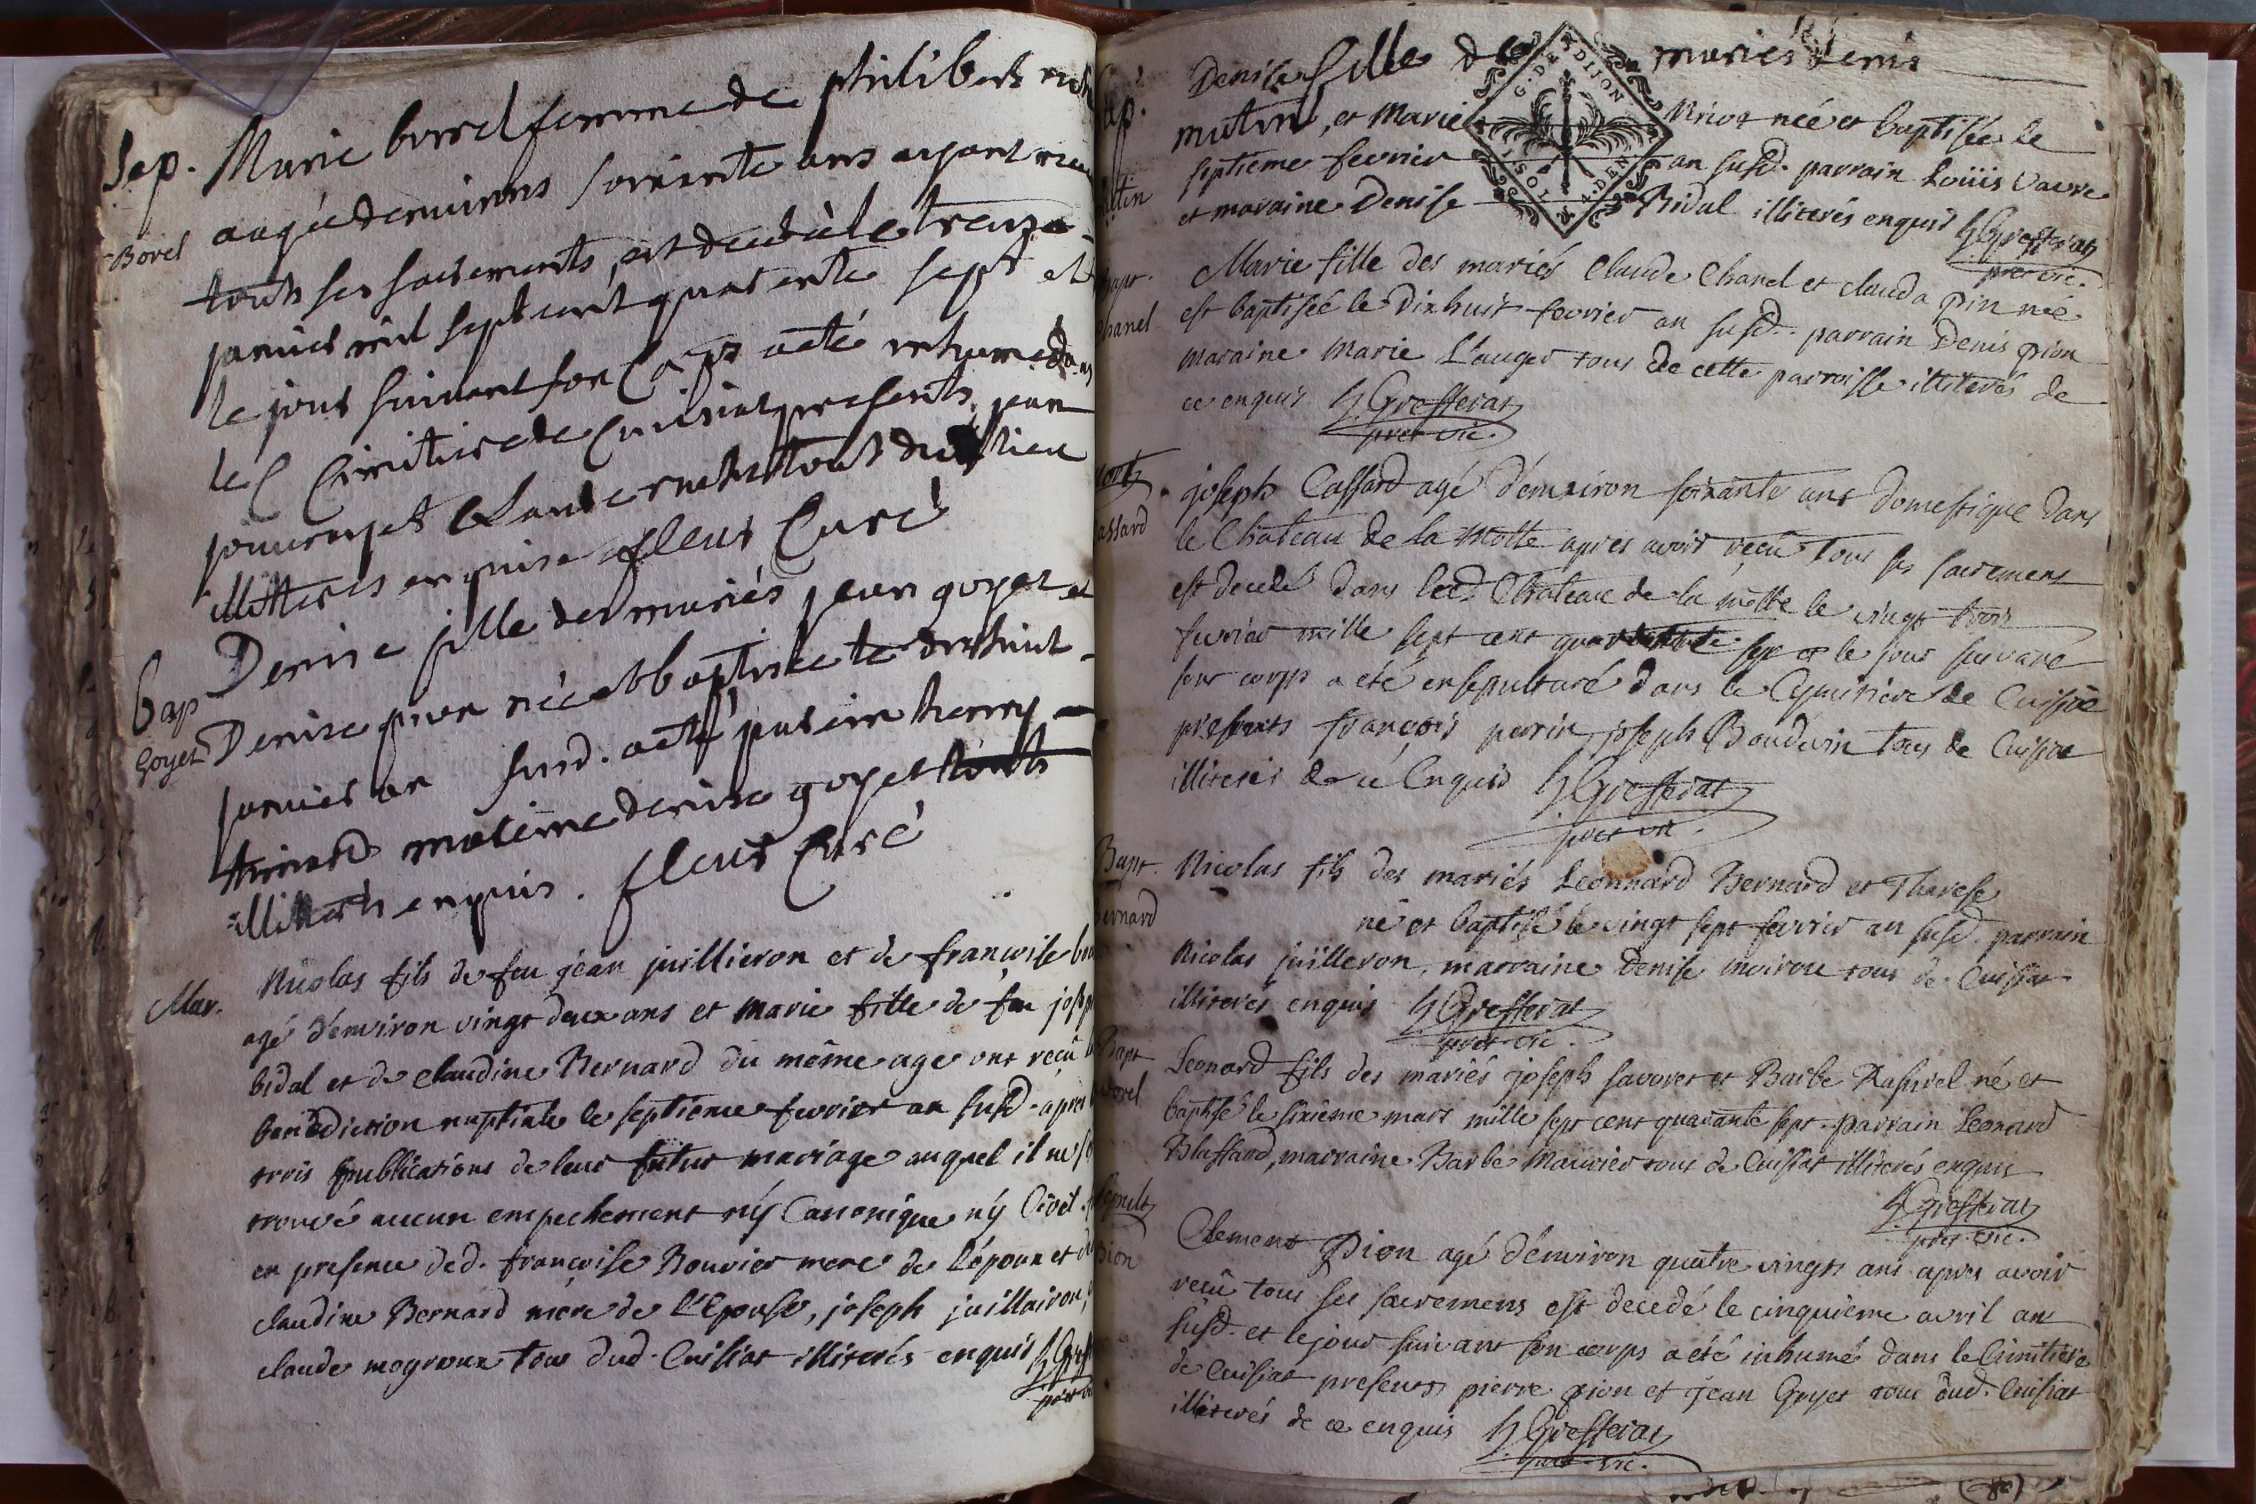 Sep. Marie borrel femme de philibert
Borel
augée denvirons soixante ans ayant
touts ses sacrements, est decedée le treize
janvier mil sept cent quarante sept et
le jour suivant son Corps a eté inhumé dans
le Cimitiere de Cuisiat presents jean
et Claude touts du lieu
illitteres enquis fleur Curé
bap Denise fille des mariés jean goyet et
Goyet Denise pion née et baptisée le dixhuit
janvier an susd. a eté parein henry
mareine denise goyet touts
illitterés enquis. fleur Curé
Mar. Nicolas fils de feu jean juillieron et de françoise
agé d'environ vingt deux ans et marie fille de feu joseph
bidal et de claudine Bernard du même age ont reçu
benediction nuptiale le septieme fevrier an susd. apres
trois publications de leur futur mariage auquel il ne
trouvé aucun empechement ny Canonique ny Civil
en presence de d. françoise Bouvier mere de l'époux et de
claudine Bernard mere de l'Epouse, joseph juillairon,
claude moyroux tous dud. Cuisiat illiterés enquis
Denise fille de mariés denis
G. DE DIJON
mutin, et Marie Rivot née et baptisée le
septieme fevrier an susd. parrain Loüis vavre
et maraine Denise Bidal illiterés enquis h Grefferat
pret vic.
Bapt. Marie fille des mariés Claude Chanel et clauda pin née
Chanel
est baptisée le dixhuit fevrier an susd. parrain Denis pion
maraine Marie L'auger tous de cette parroisse illiterés de
ce enquis h Grefferat
pret vic.
joseph Cassard agé d'environ soixante ans domestique dans
le Chateau de la Motte apres avoir reçu tous ses sacremens
est decedé dans led. Chateau de la motte le vingt trois
fevrier mille sept cent quarante sept et le jour suivant
son corps a eté ensepulturé dans le Cymitiere de Cuisiat
presents françois perrin, joseph Bouduin tous de Cuisiat
illiterés de ce Enquis h Grefferat
pret vic.
Bapt. Nicolas fils des mariés Leonnard Bernard et Therese
Bernard né et baptisé le vingt sept fevrier an susd. parrain
Nicolas juilleron, marraine Denise moirou tous de Cuisiat
illiterés enquis h Grefferat
pret vic.
Bapt Leonard fils des mariés joseph savoret et Barbe né et
baptisé le sixieme mars mille sept cent quarante sept. parrain Leonard
Blassard, marraine Barbe Mourier tous de Cuisiat illiterés enquis
h Grefferat
pret vic.
Clement Pion agé d'environ quatre vingts ans apres avoir
reçu tous ses sacremens est decedé le cinquieme avril an
susd. et le jour suivant son corps a été inhumé dans le Cimitiere
de Cuisiat presents pierre pion et jean Goyet tous dud. Cuisiat
illiterés de ce enquis h Grefferat
pret vic.